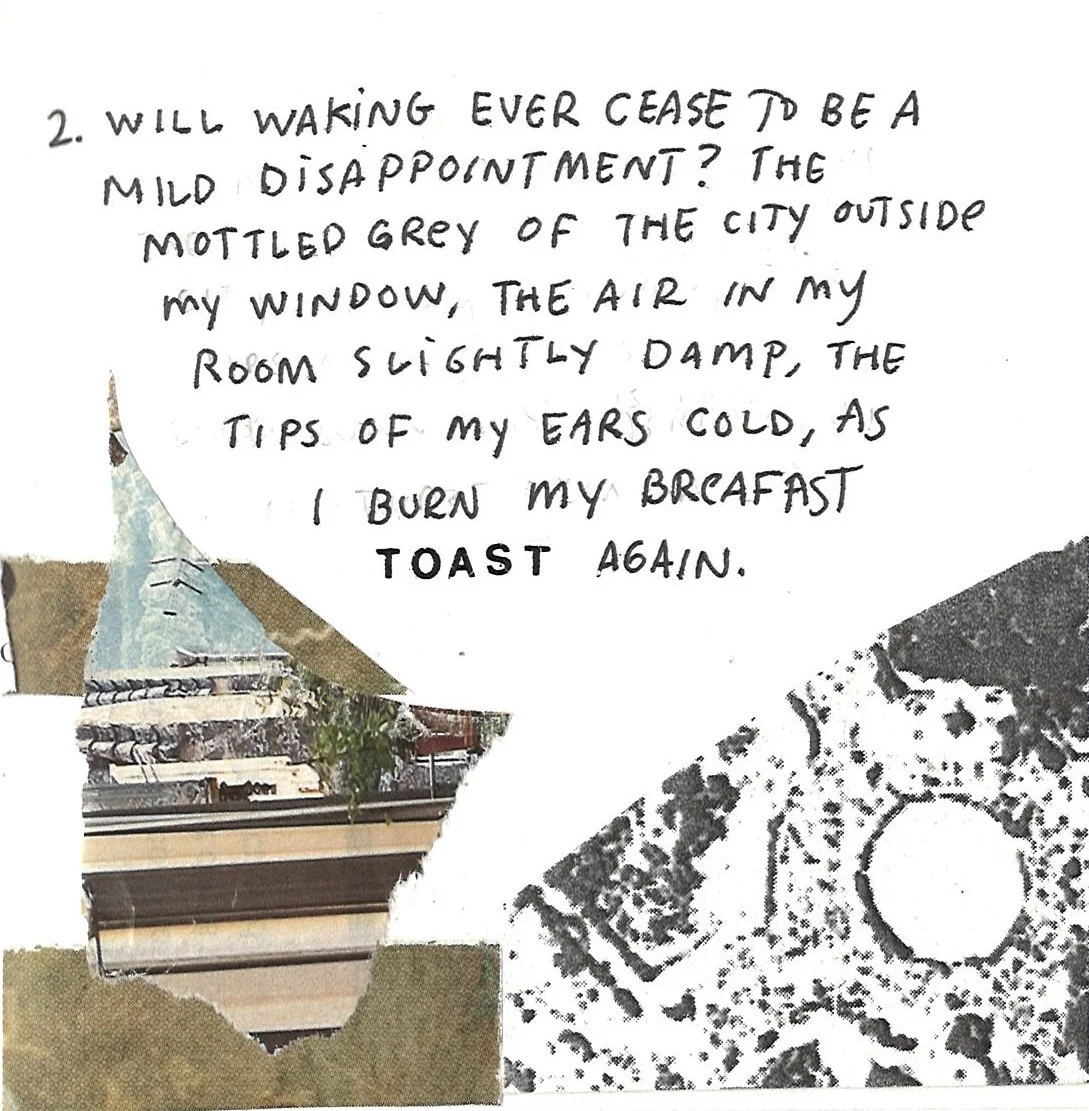 2. WILL WAKING EVER CEASE TO BE A
MILD DISAPPOINTMENT? THE
MOTTLED GREY OF THE CITY OUTSIDE
MY WINDOW, THE AIR IN MY
ROOM SLIGHTLY DAMP, THE
TIPS OF MY EARS COLD, AS
I BURN MY BREAFAST
TOAST AGAIN.